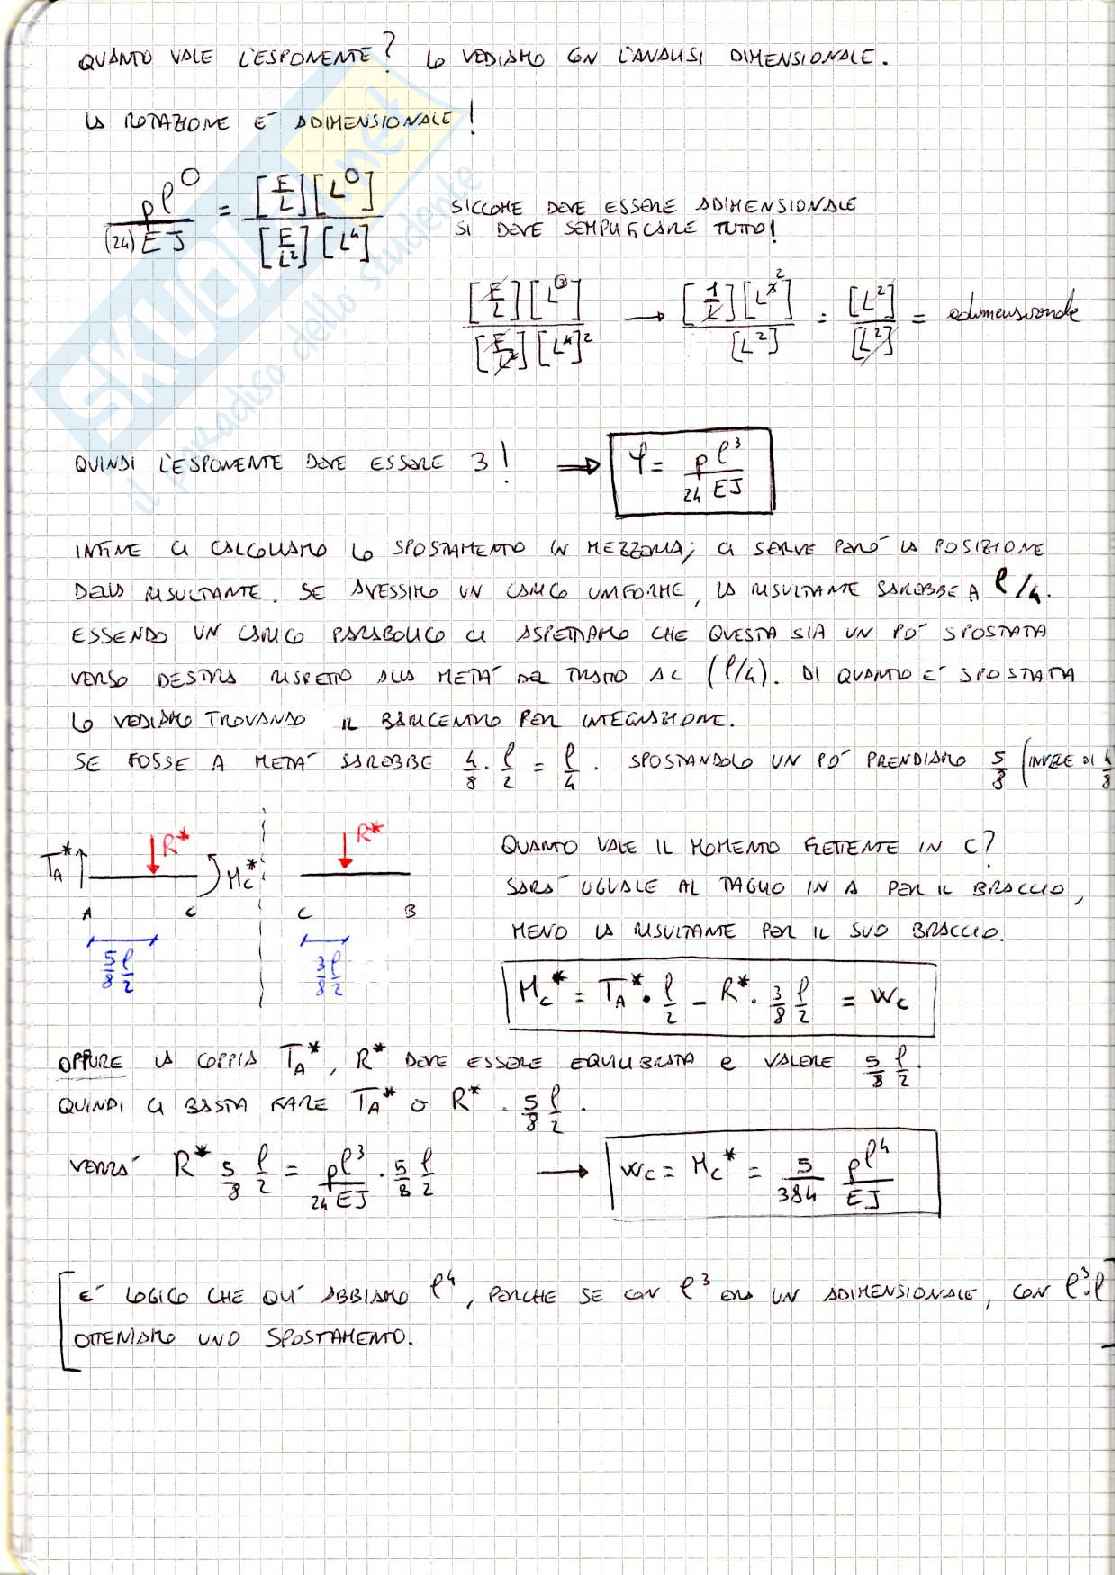 QUANTO VALE L'ESPONENTE? LO VEDIAMO CON L'ANALISI DIMENSIONALE.
LA ROTAZIONE E' ADIMENSIONALE!
pℓ^○ / (24) EJ = [F/L][L^○] / [F/L²][L⁴]
SICCOME DEVE ESSERE ADIMENSIONALE
SI DEVE SEMPLIFICARE TUTTO!
[F/L][L^③] / [F/L²][L⁴]² → [1/L][L³]² / [L²] = [L²] / [L²] = adimensionale
QUINDI L'ESPONENTE DEVE ESSERE 3! ⇒ φ = pℓ³ / 24 EJ
INFINE CI CALCOLIAMO LO SPOSTAMENTO IN MEZZERIA; CI SERVE PERO' LA POSIZIONE
DELLA RISULTANTE. SE AVESSIMO UN CARICO UNIFORME, LA RISULTANTE SAREBBE A ℓ/4.
ESSENDO UN CARICO PARABOLICO CI ASPETTIAMO CHE QUESTA SIA UN PO' SPOSTATA
VERSO DESTRA RISPETTO ALLA META' DEL TRATTO AC (ℓ/4). DI QUANTO E' SPOSTATA
LO VEDIAMO TROVANDO IL BARICENTRO PER INTEGRAZIONE.
SE FOSSE A META' SAREBBE 4/8 · ℓ/2 = ℓ/4. SPOSTANDOLO UN PO' PRENDIAMO 5/8 (INVECE DI 4/8
T_A* R* M_C* R*
A C C B
5/8 ℓ/2 3/8 ℓ/2
QUANTO VALE IL MOMENTO FLETTENTE IN C?
SARA' UGUALE AL TAGLIO IN A PER IL BRACCIO,
MENO LA RISULTANTE PER IL SUO BRACCIO.
M_C* = T_A* · ℓ/2 - R* · 3/8 ℓ/2 = W_C
OPPURE LA COPPIA T_A*, R* DEVE ESSERE EQUILIBRATA e VALERE 5/8 ℓ/2.
QUINDI CI BASTA FARE T_A* O R* · 5/8 ℓ/2.
VERRA' R* 5/8 ℓ/2 = pℓ³/24 EJ · 5/8 ℓ/2 → W_C = M_C* = 5/384 pℓ⁴/EJ
E' LOGICO CHE QUI ABBIAMO ℓ⁴, PERCHE SE CON ℓ³ ERA UN ADIMENSIONALE, CON ℓ³·ℓ
OTTENIAMO UNO SPOSTAMENTO.
SKUOLA.net
il paradiso dello studente